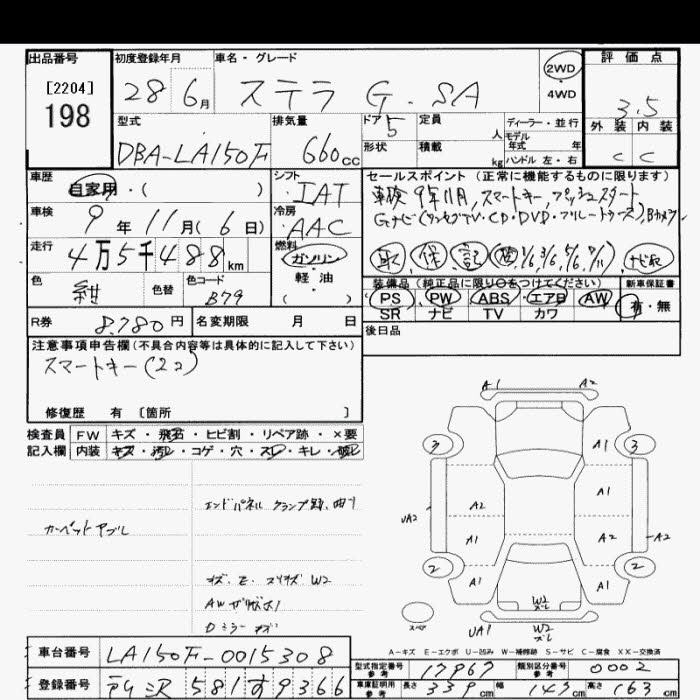 出品番号
[2204]
198
初度登録年月
28 6月
車名・グレード
ステラ G・SA
2WD
4WD
評価点
3.5
外装 内装
C C
型式
DBA-LA150F
排気量
660cc
ドア 5
形状
定員 人
積載 kg
ディーラー・並行
モデル
年式 年
ハンドル 左・右
車歴
自家用・( )
シフト
IAT
セールスポイント (正常に機能するものに限ります)
車検 9年11月,スマートキー,プッシュスタート
Gナビ(ワンセグTV・CD・DVD・ブルートゥース),Bカメラ
車検
9年 11月( 6日)
冷房
AAC
走行
4万5千488km
燃料
ガソリン
軽油
( )
取 保 記 ナビ取
色
紺
色替
色コード
B79
装備品 (純正品に限り○をつけてください)
新車保証書
PS PW ABS エアB AW
有・無
SR ナビ TV カワ
R券 8,780円
名変期限 月 日
後日品
注意事項申告欄 (不具合内容等は具体的に記入して下さい)
スマートキー(2コ)
修復歴 有 〔箇所 〕
検査員
記入欄
FW キズ・飛石・ヒビ割・リペア跡・×要
内装 キズ・汚レ・コゲ・穴・スレ・キレ・破レ
エンドパネル クランプ跡、曲り
カーペットヤブレ
キズ、E、スリキズ W2
AWガリキズ小
DミラーキズA1 A2
3 A1 3
A1
A2
UA2
A1 A2 A2
2 A1 A1 2
W2
ズレ
スペア
UA1 W2
ズレ
A-キズ E-エクボ U-凹み W-補修跡 S-サビ C-腐食 XX-交換済
車台番号 LA150F-0015308
登録番号 所沢 581す9366
型式指定番号
参考
17967
類別区分番号
参考
0002
車庫証明用
参考
長さ 339cm 幅 147cm 高さ 163cm